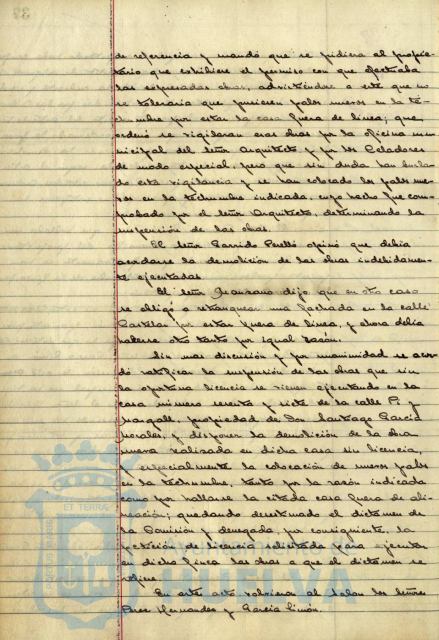 de referencia y mandó que se pidiera al propie-
tario que exhibiere el permiso con que efectuaba
las expresadas obras, advirtiéndose a este que no
se toleraria que pusiesen palos nuevos en la te-
chumbre por estar la casa fuera de linea; que
ordenó se vigilaran esas obras por la oficina mu-
nicipal del Señor Arquitecto y por los Celadores
de modo especial, pero que sin duda han burla-
do esta vigilancia y se han colocado los palos nue-
vos en la techumbre indicada, cuyo hecho fue com-
probado por el Señor Arquitecto, determinando la
suspensión de las obras.
El Señor Garrido Perelló opinó que debia
acordarse la demolición de las obras indebidamen-
te ejecutadas.
El Señor Manzano dijo que en otro caso
se obligó a retranquear una fachada en la calle
Castelar por estar fuera de linea, y ahora debia
hacerse otro tanto por igual razón.
Sin mas discusión y por unanimidad se acor-
dó ratificar la suspensión de las obras que sin
la oportuna licencia se vienen ejecutando en la
casa número sesenta y siete de la calle P. y
Margall, propiedad de Don Santiago García
Morales, y disponer la demolición de la obra
nueva realizada en dicha casa sin licencia,
y especialmente la colocación de nuevos palos
en la techumbre, tanto por la razón indicada
como por hallarse la citada casa fuera de ali-
neación; quedando desestimado el dictamen de
la Comisión y denegada, por consiguiente, la
petición de licencia solicitada para ejecutar
en dicha finca las obras a que el dictamen se
refiere.
En este acto volvieron al Salon los Señores
Perez Hernandez y García Limón.
ET TERRÆ
Ayuntamiento de
HUELVA